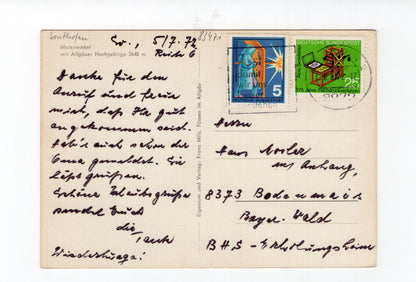 Sonthofen
Malerwinkel
mit Allgäuer Hochgebirge 2648 m
83471
So., 5/7.72
Danke für den
Anruf und freue
mich, daß Ihr gut
angekommen seid.
Hab's auch schon der
Oma gemeldet. Sie
läßt grüßen.
Schöne Urlaubsgrüße
sendet Euch
die Tante
Wiederhuaga!
Eigentum und Verlag: Franz Milz, Füssen im Allgäu
5
DEUTSCHE BUNDESPOST
25
Herrn
Hans Mosler
mit Anhang,
8373 Bodenmais
Bayer. Wald
BHS - Erholungsheim